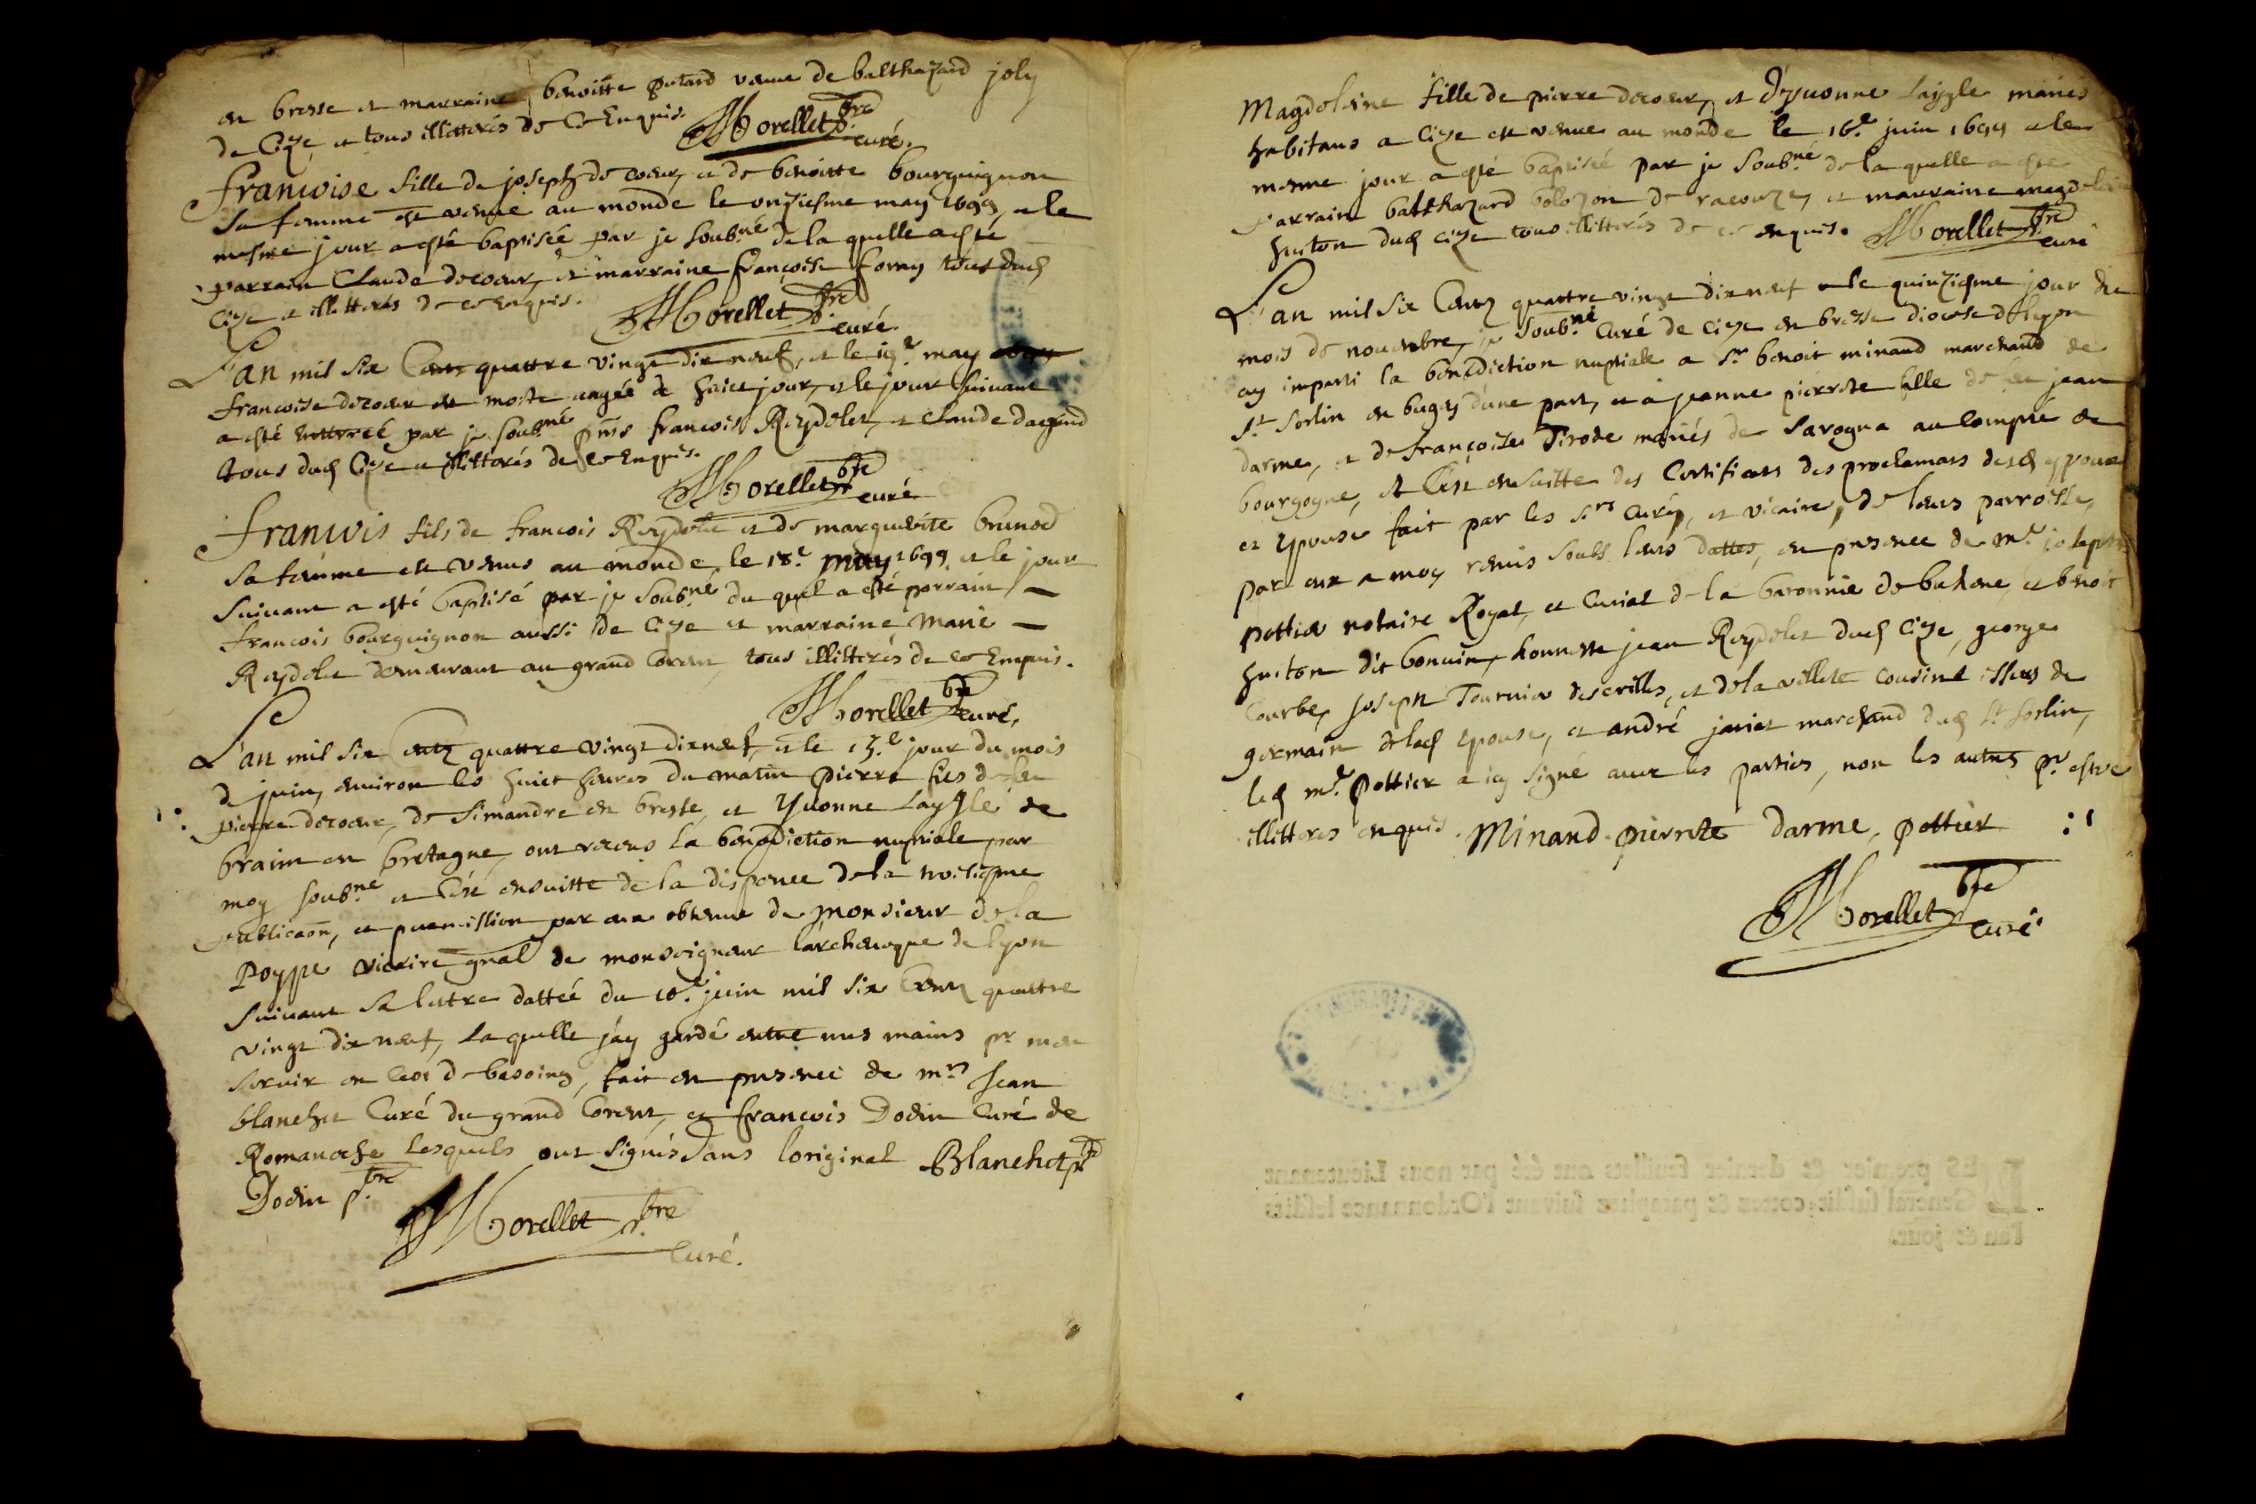 en bresse et marraine benoitte putard veuve de balthazard joly
de Cize et tous illitterés de ce Enquis.
Morellet pbre curé.
francoise fille de joseph decoeur, et de benoitte bourguignon
sa femme est venue au monde le unziesme may 1699, et le
mesme jour a esté baptisée par je soubné de la quelle a esté
parrain Claude decoeur, et marraine françoise foray tous dud
Cize et illitterés de ce enquis.
Morellet pbre curé.
L'an mil six Cents quattre vingt dix neuf, et le 19e may
francoise decoeur est morte aagée de huict jour, et le jour suivant
a esté enterreé par je soubné pnts francois Reydelet, et claude dagond
tous dud Cize et illitterés de ce Enquis.
Morellet pbre curé
francois fils de francois Reydelet et de marguerite brunod
sa femme est venus au monde, le 18e may 1699 et le jour
suivant a esté baptisé par je soubné du quel a esté parrain
francois bourguignon aussi de Cize et marraine marie
Reydelet demeurant au grand Corent, tous illitterés de ce Enquis.
Morellet pbre curé.
L'an mil six centz quattre vingt dix neuf, et le 15e jour du mois
de juin, environ les huict heures du matin pierre fils de feu
pierre decoeur, de simandre en bresse, et yvonne Laygle de
braim en bretagne, ont receus la benediction nuptiale par
moy soubné et C'est ensuitte de la dispence de la troisiesme
publicaon, et permission par eux obtenue de monsieur de la
poype vicaire gnal de monseigneur l'archevesque de lyon
suivant sa lettre dattée du 10e juin mil six Centz quattre
vingt dix neuf, laquelle j'ay gardé entre mes mains pr men
servir en Cas de besoing, fait en presence de mrs Jean
blanchet Curé du grand Corent, et francois Dodin Curé de
Romaneche lesquels ont signés dans l'original Blanchet pbr
Dodin pbre
Morellet pbre
Curé.
Magdeleine fille de pierre decoeur, et d'yvonne laygle mariés
habitans a Cize est venue au monde le 16e juin 1699 et le
mesme jour a esté baptisée par je soubné de la quelle a esté
parrain balthazard bolozon de racouze, et marraine magdeleine
huiton dud Cize tous illitterés de ce enquis. Morellet pbre
Curé
L'an mil six Centz quattre vingt dix neuf et le quinziesme jour du
mois de novembre, je soubné Curé de Cize en bresse diocese de lyon
ay imparti la benediction nuptiale a sr benoit minand marchand de
st sorlin en bugey d'une part, et a jeanne pierrete fille de feu jean
darme, et de françoise Tirode mariés de savogna au Compté de
bourgogne, et C'est ensuitte des Certificats des proclamats desd espoux
et epouse fait par les srs Curés, et vicaire, de leurs parroisse,
par eux a moy remis soubs leurs dattes, en presence de me joseph
pottier notaire Royal, et Curial de la baronnie de buhene, et benoit
huiton dit bonvin, honneste jean Reydelet dud Cize, george
Courbe, joseph Tournier desevilles, et de la villete cousins issus de
germain de lad epouse, et andré janiat marchand dud st sorlin,
led me pottier a icy signé avec les parties, non les autres pr estre
illitteres enquis. Minand pierrete darme, pottier
Morellet pbre
Curé.
LES premier & dernier feuillets ont été par nous Lieutenant
General susdit, cottez & paraphez suivant l'Ordonnance lesdits
l'an & jours